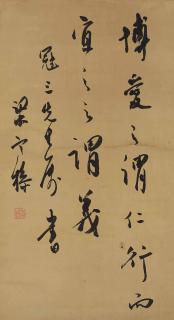 博愛之謂仁行而
宜之之謂義
冠三先生属書
梁士詒